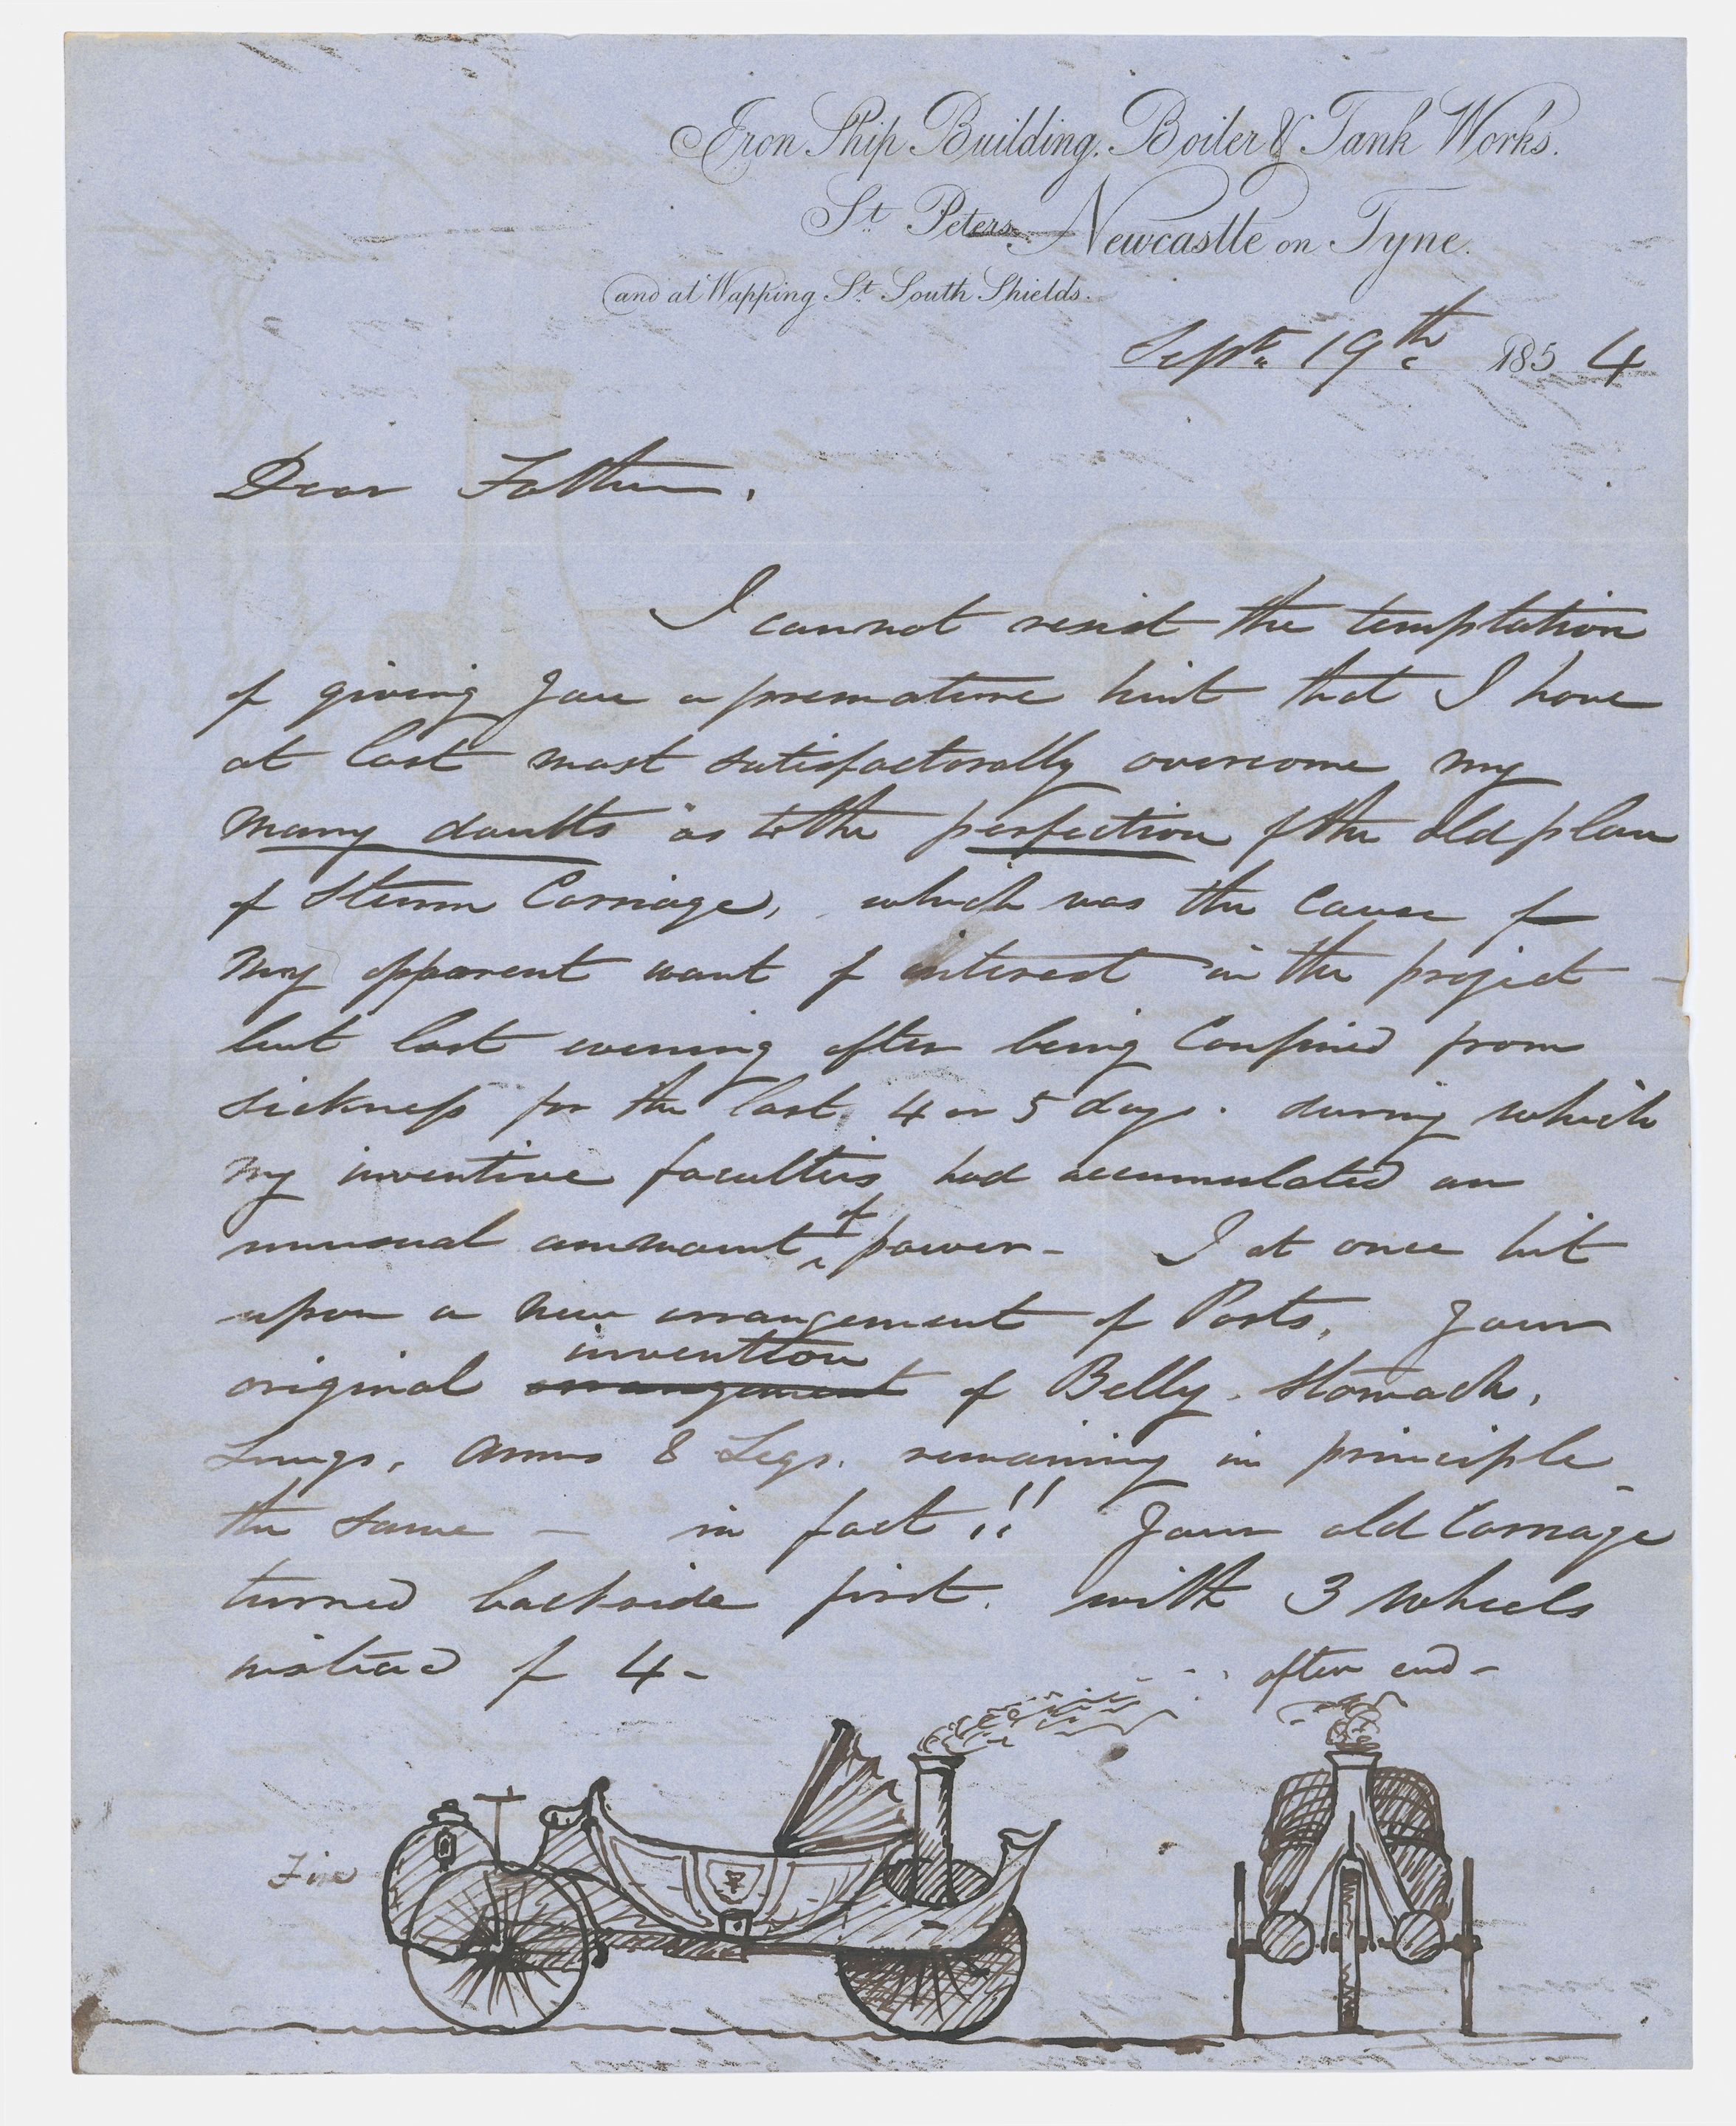 Iron Ship Building, Boiler & Tank Works.
St. Peters, Newcastle on Tyne.
and at Wapping St. South Shields.
Septr. 19th 1854
Dear Father,
I cannot resist the temptation
of giving You a premature hint that I have
at last most satisfactorally overcome my
many doubts as to the perfection of the old plan
of Steam Carriage, which was the cause of
my apparent want of interest in the project -
but last evening after being Confined from
sickness for the last 4 or 5 days. during which
my inventive faculties had accumulated an
unusual ammount of power - I at once hit
upon a new arrangement of Parts, Your
original arrangement invention of Belly, Stomach,
Lungs, Arms & Legs. remaining in principle
the same - in fact!! Your old Carriage
turned backside first. with 3 Wheels
instead of 4 -
after end -
Fire